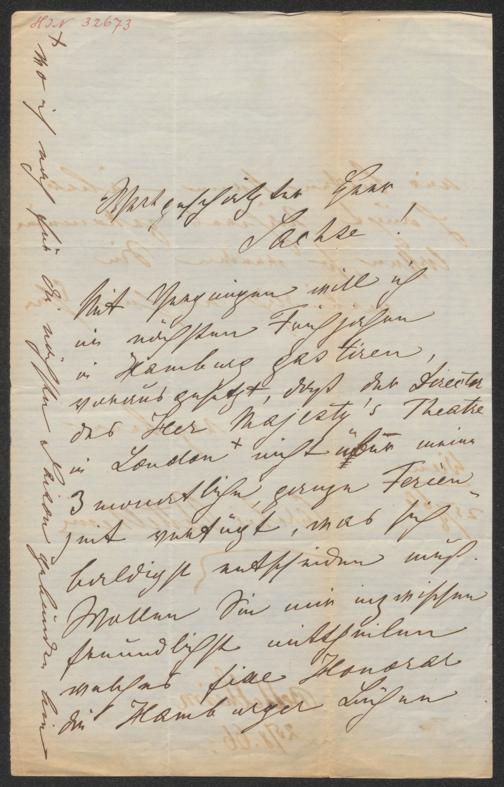 HIN 32673
Wertgeschätzter Herr
Sachse!
Mit Vergnügen will ich
im nächsten Frühjahre
in Hamburg gastiren,
vorausgesetzt, daß der Director
des Her Majesty's Theatre
in London + nicht über meine
3 monatliche, ganze Ferien
zeit verfügt, was sich
baldigst entscheiden muß.
Wollen Sie mir inzwischen
freundlichst mittheilen
welches fixe Honorar
die Hamburger Bühne
+ wo ich noch für die nächste Saison gebunden bin